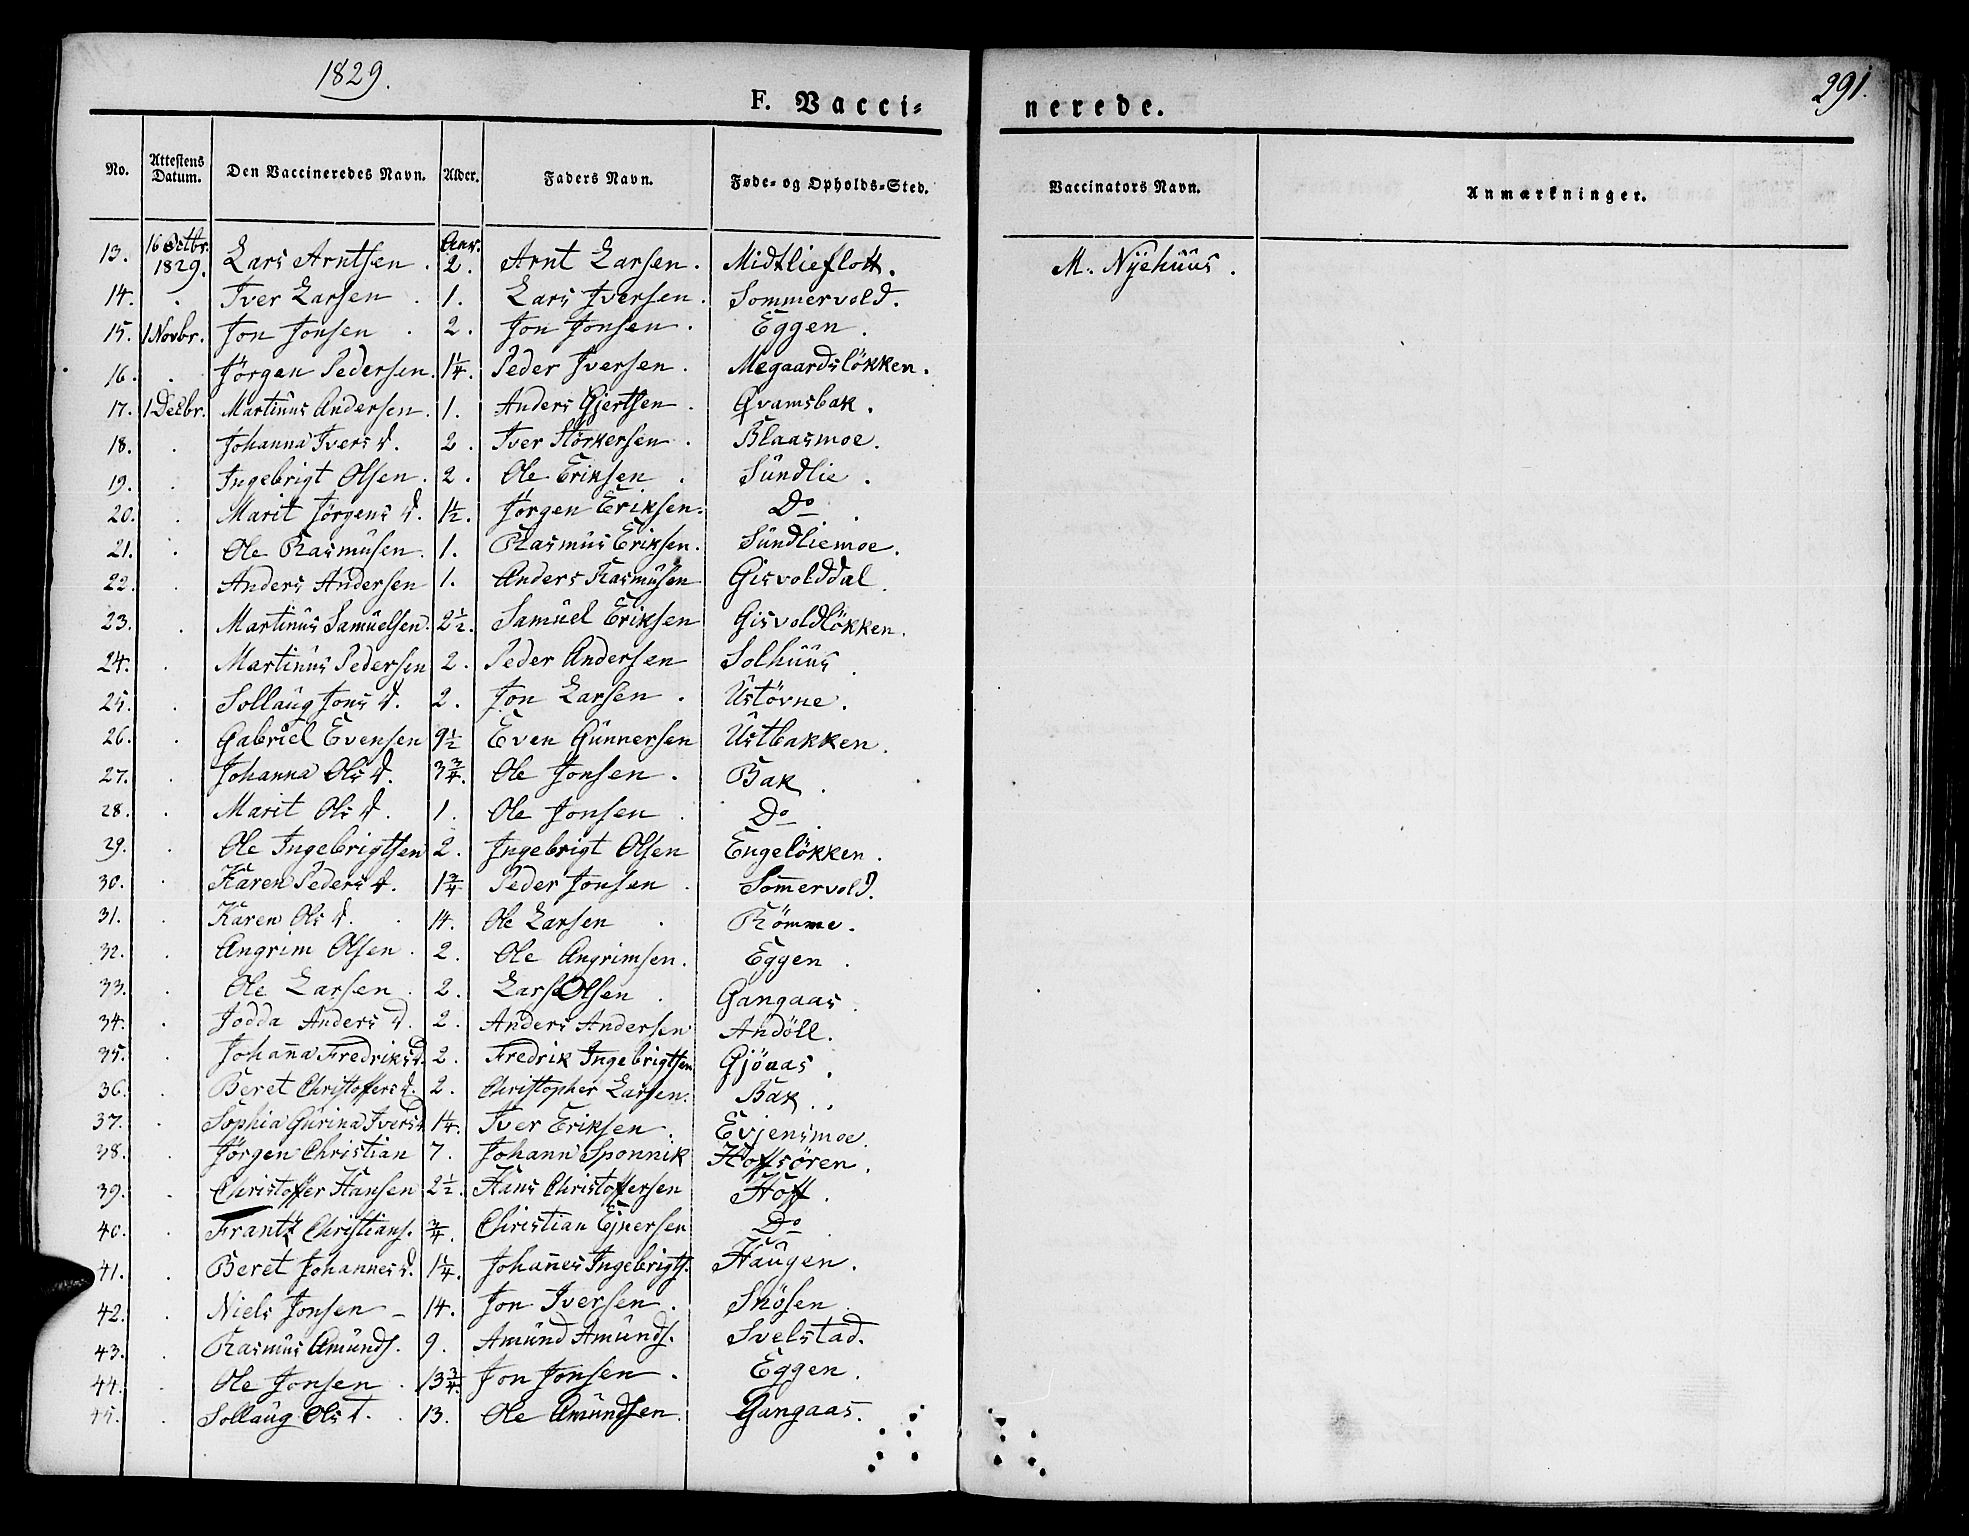 1829.
291.
F. Vacci=
nerede.
No. Attestens Datum. Den Vaccineredes Navn. Alder. Faders Navn. Føde- og Opholds-Sted. Vaccinators Navn. Anmærkninger.
13. 16 Octbr. 1829. Lars Arntsen. Aar. 2. Arnt Larsen. Midtlieflott. M. Nyehuus.
14. . Iver Larsen. 1. Lars Iversen. Sommervold.
15. 1 Novbr. Jon Jonsen. 2. Jon Jonsen. Eggen.
16. . Jörgen Pedersen. 1¼. Peder Iversen. Megaardslökken.
17. 1 Decbr. Martinus Andersen. 1. Anders Gjertsen. Qvamsbak.
18. . Johanna Ivers d. 2. Iver Störkersen. Blaasmoe.
19. . Ingebrigt Olsen. 2. Ole Eriksen. Sundlie.
20. . Marit Jörgens d. 1½. Jörgen Eriksen. Do
21. . Ole Rasmusen. 1. Rasmus Eriksen. Sundliemoe.
22. . Anders Andersen 1. Anders Rasmusen Gisvolddal.
23. . Martinus Samuelsen. 2½. Samuel Eriksen Gisvoldlökken.
24. . Martinus Pedersen 2. Peder Andersen Solhuus.
25. . Sollaug Jons d. 2. Jon Larsen. Ustövne.
26. . Gabriel Evensen 9½ Even Gunnersen Ustbakken.
27. . Johanna Ols d. 3¾. Ole Jonsen. Bak.
28. . Marit Ols d. 1. Ole Jonsen. Do
29. . Ole Ingebrigtsen 2. Ingebrigt Olsen Engelökken.
30. . Karen Peders d. 1¾ Peder Jonsen. Som̄ervold.
31. Karen Ols d. 14. Ole Larsen. Römme.
32. . Angrim Olsen. 2. Ole Angrimsen. Eggen.
33. . Ole Larsen. 2. Lars Olsen. Gangaas.
34. . Jodda Anders d. 2. Anders Andersen Andöll.
35. . Johan̄a Fredriksd. 2. Fredrik Ingebrigtsen Gjönaas.
36. . Beret Christoffers d. 2. Christopher Larsen. Bak.
37. . Sophia Gurina Ivers d. 1¼. Iver Eriksen. Evjensmoe.
38. . Jörgen Christian 7. Johann Sponnik Hoffsören.
39. . Christoffer Hansen 2½. Hans Christoffersen Hoff.
40. . Frantz Christians. ¾. Christian Ejnersen Do.
41. . Beret Johannes d. 1¼. Johan̄es Ingebrigts. Haugen.
42. . Niels Jonsen 14. Jon Iversen. Snösen.
43. . Rasmus Amunds. 9. Amund Amunds. Svelstad.
44. . Ole Jonsen. 13¾. Jon Jonsen. Eggen.
45. . Sollaug Ols d. 13. Ole Amundsen. Gangaas.